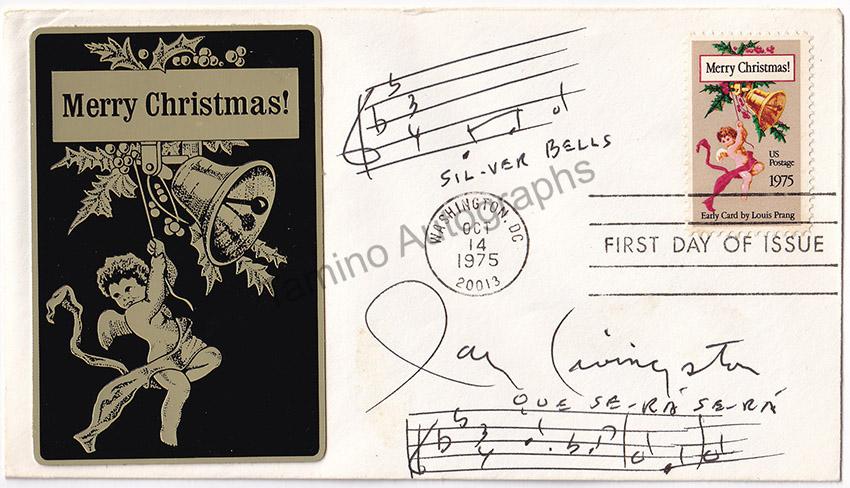 Merry Christmas!
3
4
SIL-VER BELLS
Merry Christmas!
US
Postage
1975
Early Card by Louis Prang
WASHINGTON, DC
OCT
14
1975
20013
FIRST DAY OF ISSUE
Tamino Autographs
Jay Livingston
QUE SE-RÁ SE-RÁ
3
4